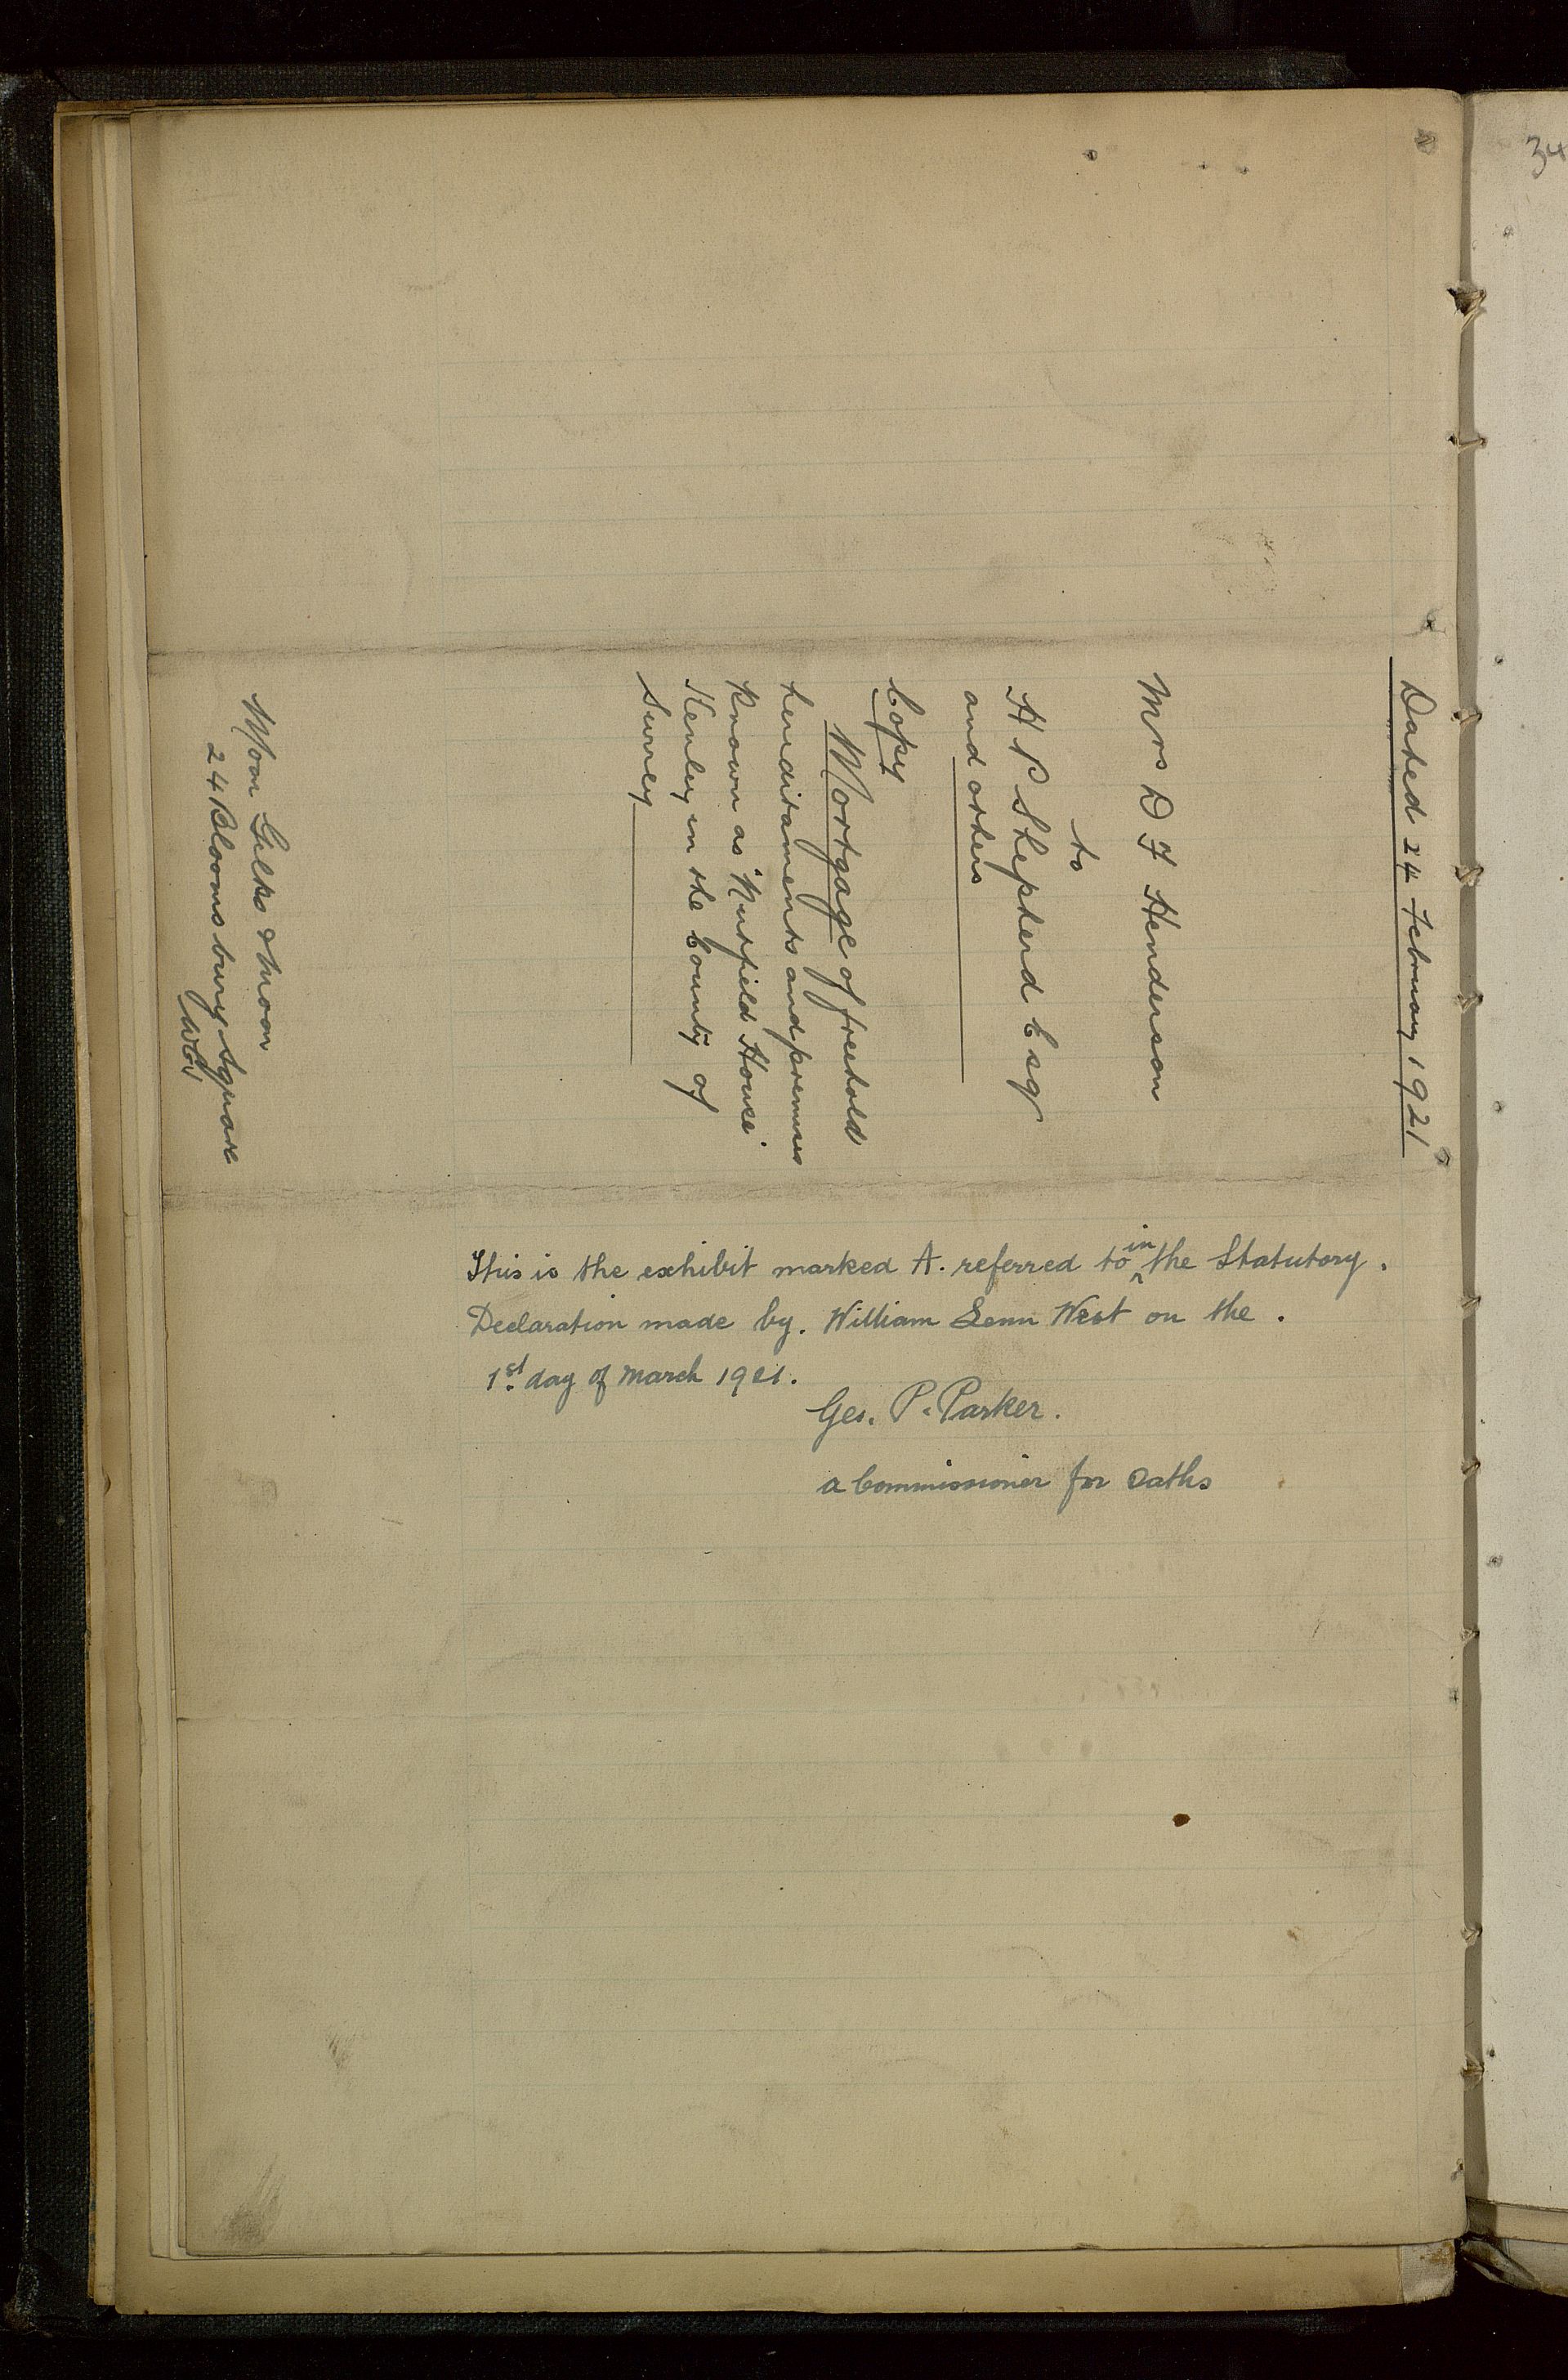 Dated 24 February 1921
Mrs D F Henderson
to
H P Shepherd Esqr
and others
Copy
Mortgage of freehold
hereditaments and premises
known as "Nutfield House"
Kenley in the County of
Surrey
Moon Gilks & Moon
24 Bloomsbury Square
WC1
This is the exhibit marked A. referred to in the Statutory.
Declaration made by. William Lenn West on the.
1st day of March 1921.
Geo. P. Parker.
a Commissioner for Oaths
34